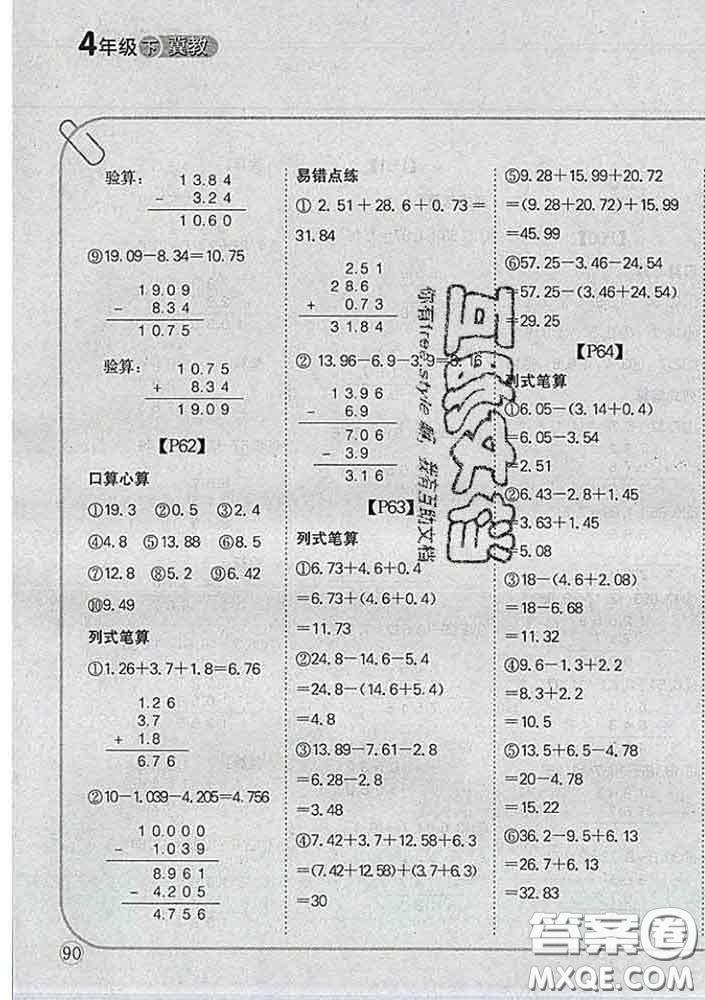 4年级 下 冀教
验算： 13.84
－ 3.24
10.60
⑨19.09－8.34＝10.75
19.09
－ 8.34
10.75
验算： 10.75
＋ 8.34
19.09
【P62】
口算心算
①19.3 ②0.5 ③2.4
④4.8 ⑤13.88 ⑧8.5
⑦12.8 ⑧5.2 ⑨6.42
⑩9.49
列式笔算
①1.26＋3.7＋1.8＝6.76
1.26
3.7
＋ 1.8
6.76
②10－1.039－4.205＝4.756
10.000
－ 1.039
8.961
－ 4.205
4.756
90
易错点练
① 2.51＋28.6＋0.73＝
31.84
2.51
28.6
＋ 0.73
31.84
② 13.96－6.9－3.9＝3.16
13.96
－ 6.9
7.06
－ 3.9
3.16
【P63】
列式笔算
①6.73＋4.6＋0.4
＝6.73＋(4.6＋0.4)
＝11.73
②24.8－14.6－5.4
＝24.8－(14.6＋5.4)
＝4.8
③13.89－7.61－2.8
＝6.28－2.8
＝3.48
④7.42＋3.7＋12.58＋6.3
＝(7.42＋12.58)＋(3.7＋6.3)
＝30
⑤9.28＋15.99＋20.72
＝(9.28＋20.72)＋15.99
＝45.99
⑥57.25－3.46－24.54
＝57.25－(3.46＋24.54)
＝29.25
【P64】
列式笔算
①6.05－(3.14＋0.4)
＝6.05－3.54
＝2.51
②6.43－2.8＋1.45
＝3.63＋1.45
＝5.08
③18－(4.6＋2.08)
＝18－6.68
＝11.32
④9.6－1.3＋2.2
＝8.3＋2.2
＝10.5
⑤13.5＋6.5－4.78
＝20－4.78
＝15.22
⑥36.2－9.5＋6.13
＝26.7＋6.13
＝32.83
你有freestyle 解，我有互助文档
答案圈
MXQE.COM